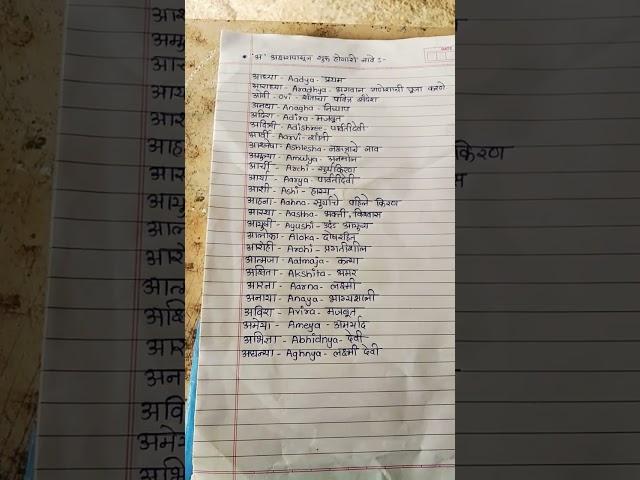 • 'अ' अक्षरापासून सुरू होणारी नावे :-
DATE
आध्या - Aadya - प्रथम
आराध्या - Aradhya - भगवान गणेशाची पूजा करणे
ओवी - ovi - संताचा पवित्र संदेश
अनघा - Anagha - निष्पाप
अदिरा - Adira - मजबूत
अदिश्री - Adishree - पार्वतीदेवी
आर्वी - Aarvi - शांती
आश्लेषा - Ashlesha - नक्षत्राचे नाव
अमूल्या - Amulya - अनमोल
आर्ची - Archi - सूर्यकिरण
आर्या - Aarya - पार्वतीदेवी
आशी - Ashi - हास्य
आहना - Aahna - सूर्याचे पहिले किरण
आस्था - Aastha - भक्ती, विश्वास
आयुषी - Ayushi - उदंड आयुष्य
आलोका - Aloka - दोषरहित
आरोही - Arohi - प्रगतीशील
आत्मजा - Aatmaja - कन्या
अक्षिता - Akshita - अमर
आरना - Aarna - लक्ष्मी
अनाया - Anaya - भाग्यशाली
अविरा - Avira - मजबूत
अमेया - Ameya - अमर्याद
अभिज्ञा - Abhidnya - देवी
अघन्या - Aghnya - लक्ष्मी देवी